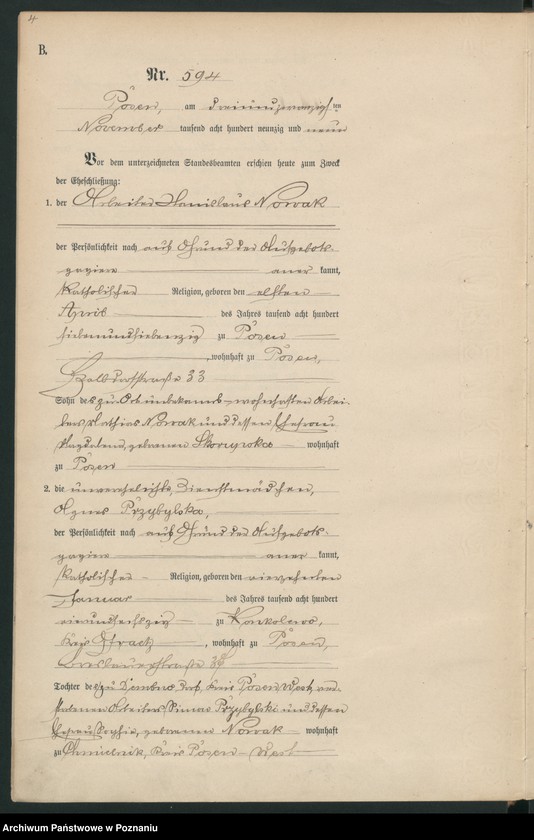 4
B.
Nr. 594
Posen, am dreiundzwanzigsten
November tausend acht hundert neunzig und neun
Vor dem unterzeichneten Standesbeamten erschien heute zum Zweck
der Eheschließung:
1. der Arbeiter Stanislaus Nowak
der Persönlichkeit nach auf Grund der Aufgebots-
papiere anerkannt,
katholischer Religion, geboren den elften
April des Jahres tausend acht hundert
siebenundsiebenzig zu Posen
, wohnhaft zu Posen,
Halbdorfstraße 33
Sohn des zu Ort unbekannt wohnhaften Arbei-
ters Mathias Nowak und dessen Ehefrau
Magdalena, geborenen wohnhaft
zu Posen
2. die unverehelichte, Dienstmädchen,
Agnes Przybylska,
der Persönlichkeit nach auf Grund der Aufgebots-
papiere anerkannt,
katholischer Religion, geboren den vierzehnten
Januar des Jahres tausend acht hundert
zu Konkolewo,
Kreis Grätz, wohnhaft zu Posen,
Breslauerstraße
Tochter des zu Dorf, Kreis Posen West, ver-
storbenen Arbeiters Simon Przybylski und dessen
Ehefrau Sophie, geborenen Nowak wohnhaft
zu Chmielnik, Kreis Posen-West
Archiwum Państwowe w Poznaniu